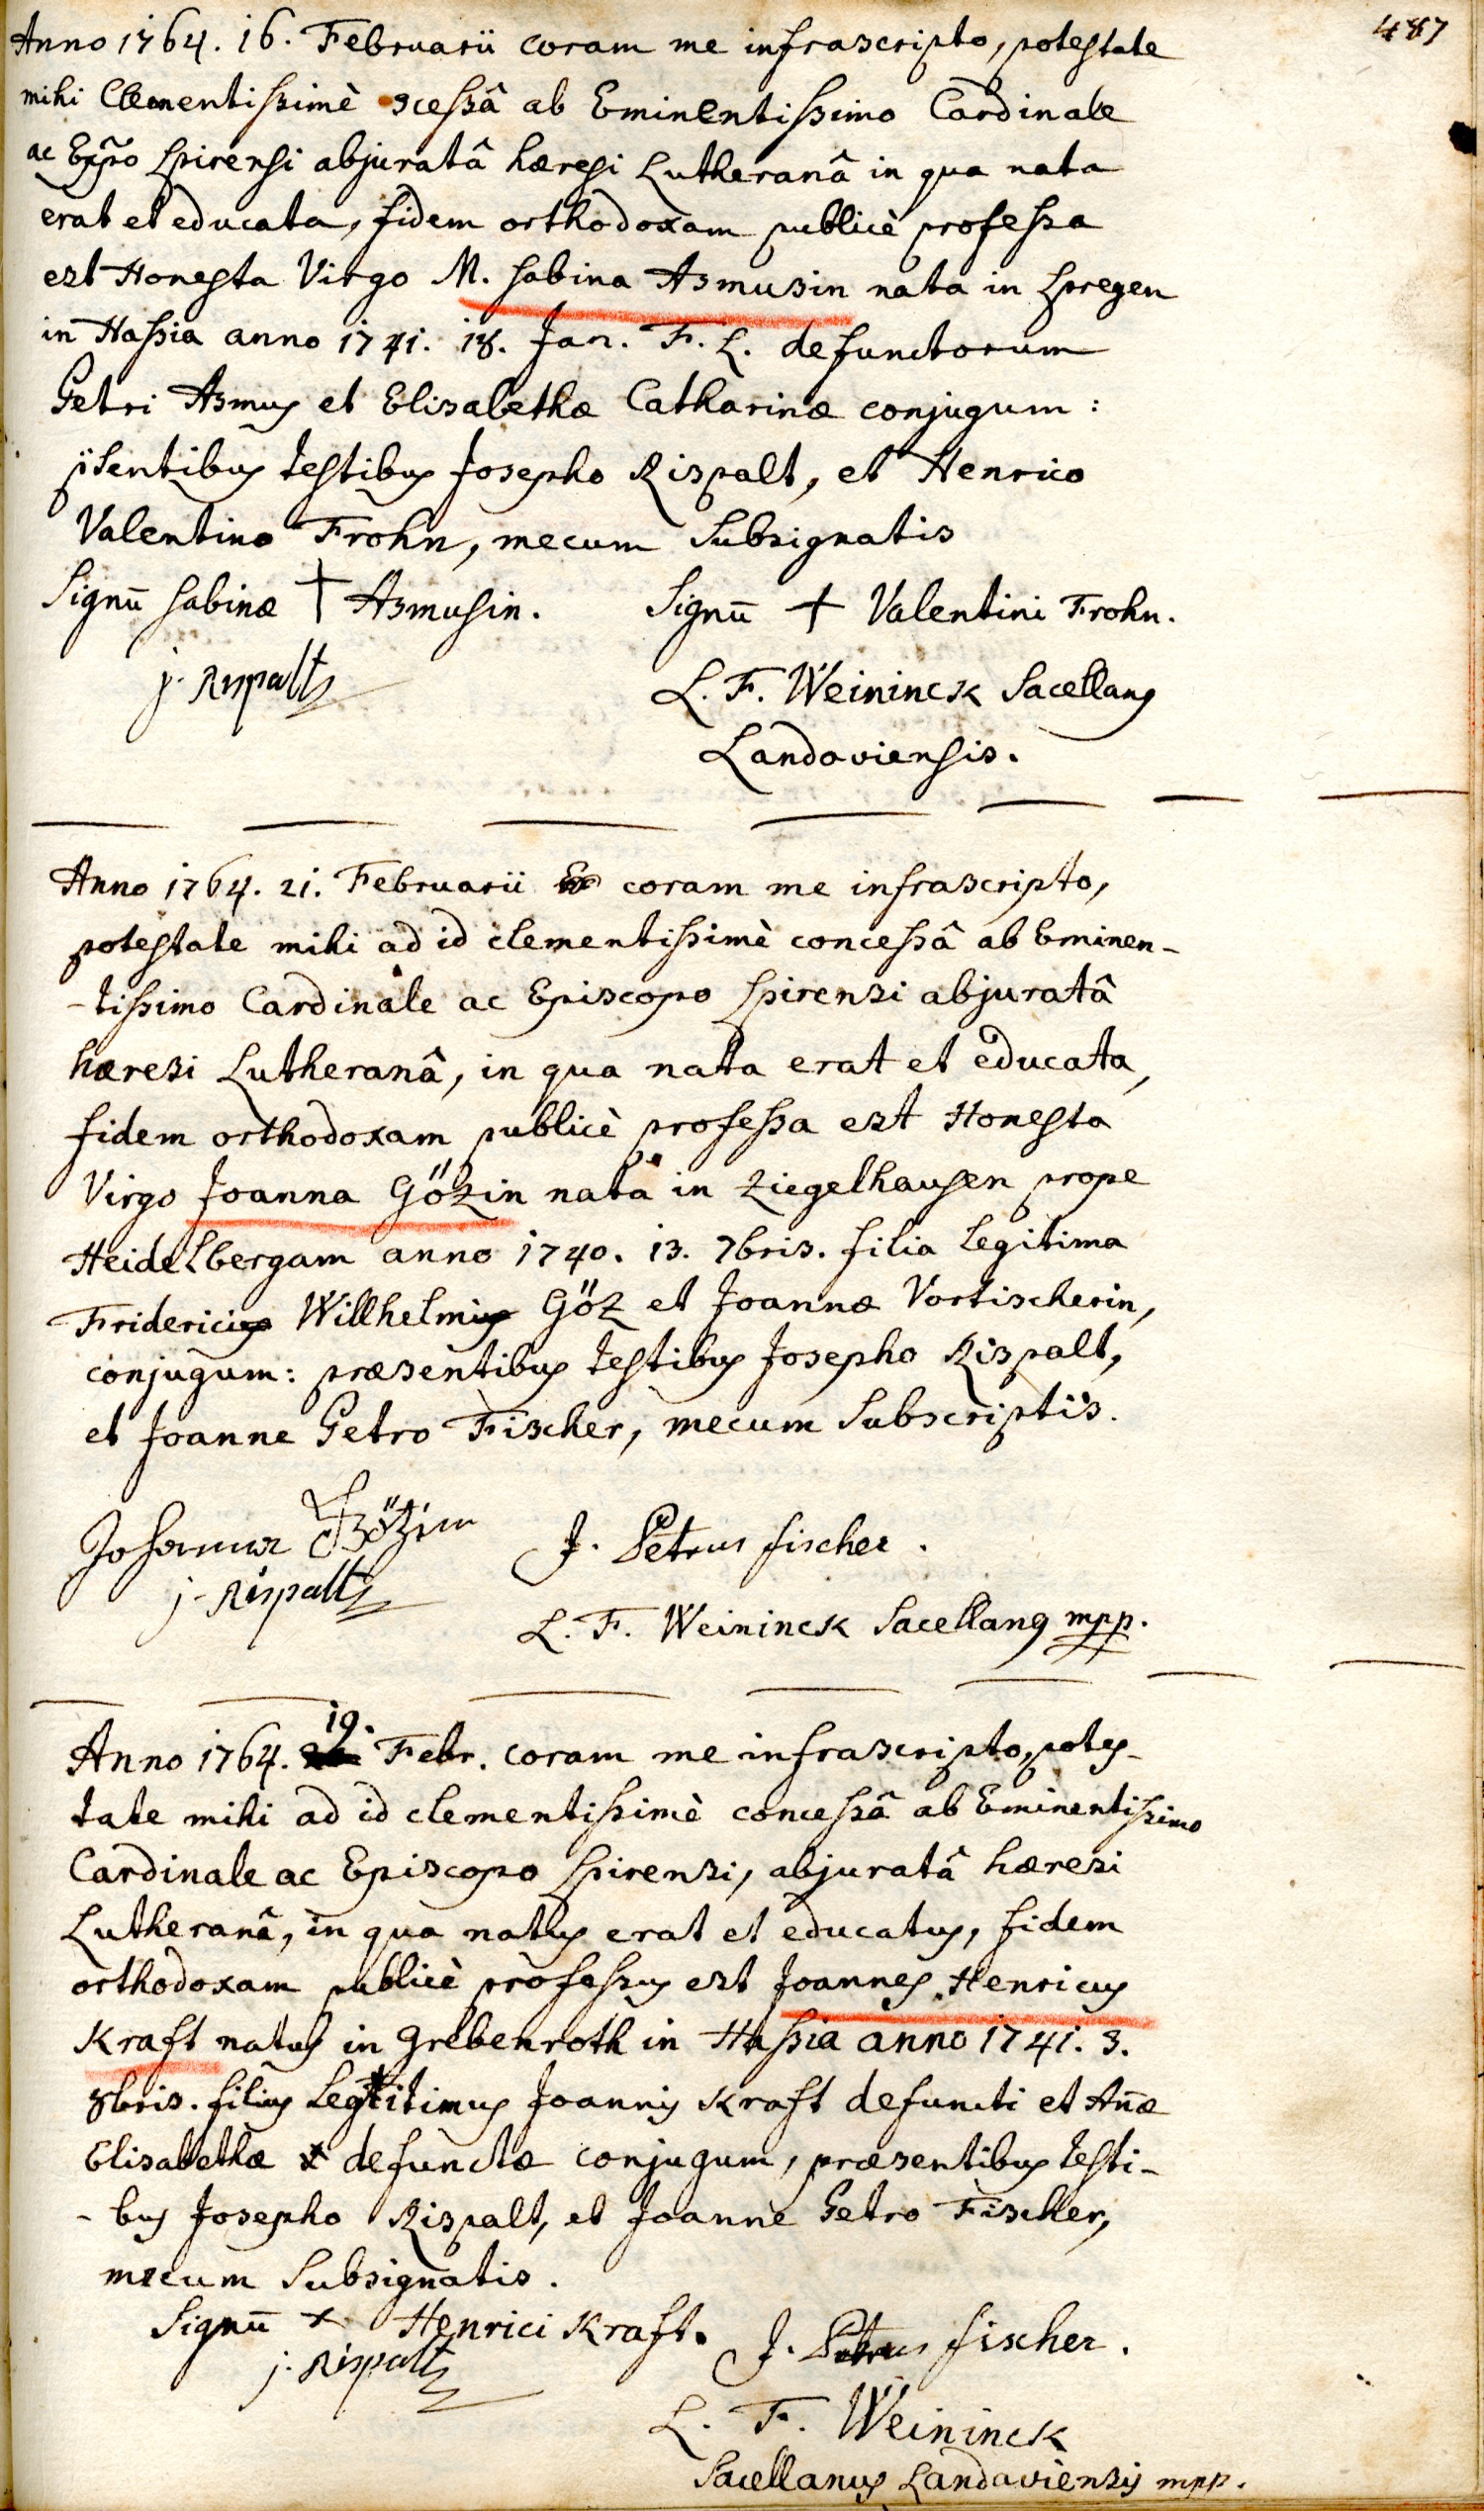 487
Anno 1764. 16. Februarii coram me infrascripto, potestate
mihi Clementissimè ɔcessâ ab Eminentissimo Cardinale
ac Eppõ Spirensi abjuratâ hæresi Lutheranâ in qua nata
erat et educata, fidem orthodoxam publicè professa
est Honesta Virgo M. Sabina Asmusin nata in Spregen
in Hassia anno 1741. 18. Jan. F. L. defunctorum
Petri Asmus et Elisabethæ Catharinæ conjugum:
p̈sentibus testibus Josepho Rispalt, et Henrico
Valentino Frohn, mecum Subsignatis
Signū Sabinæ + Asmusin. Signū + Valentini Frohn.
j. Rispalt
L. F. Weininck Sacellanus
Landaviensis.
Anno 1764. 21. Februarii coram me infrascripto,
potestate mihi ad id clementissimè concessâ ab Eminen-
-tissimo Cardinale ac Episcopo Spirensi abjuratâ
hæresi Lutheranâ, in qua nata erat et educata,
fidem orthodoxam publicè professa est Honesta
Virgo Joanna Gözin nata in Ziegelhausen prope
Heidelbergam anno 1740. 13. 7bris. filia legitima
Friderici Willhelmi Göz et Joannæ Vortischerin,
conjugum: præsentibus testibus Josepho Rispalt,
et Joanne Petro Fischer, mecum Subscriptis.
Johanna Götzin J. Petrus fischer.
j. Rispalt
L. F. Weininck Sacellanus mpp.
19.
Anno 1764. Febr. coram me infrascripto, potes-
tate mihi ad id clementissimè concessâ ab Eminentissimo
Cardinale ac Episcopo Spirensi, abjuratâ hæresi
Lutheranâ, in qua natus erat et educatus, fidem
orthodoxam publicè professus est Joannes Henricus
Kraft natus in Grebenroth in Hassia anno 1741. 3.
8bris. filius Legitimus Joannis Kraft defuncti et An̄æ
Elisabethæ defunctæ conjugum, præsentibus testi-
-bus Josepho Rispalt, et Joanne Petro Fischer,
mecum Subsignatis.
Signū + Henrici Kraft. J. Petrus fischer.
j. Rispalt
L. F. Weininck
Sacellanus Landaviensis mpp.